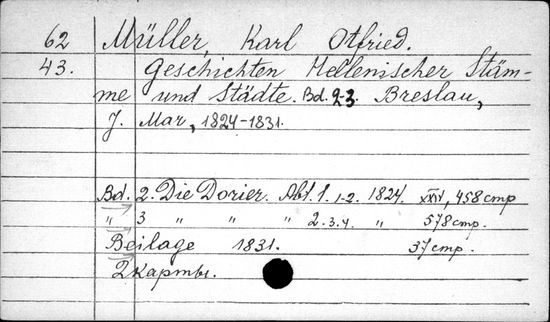 62 Müller, Karl Otfried.
43. Geschichten Hellenischer Stäm-
me und Städte. Bd. 2-3. Breslau,
J. Max, 1824-1831.
Bd. 2. Die Dorier. Abt. 1. 1-2. 1824. XXIV, 458 стр
" 3 " " " 2. 3. 4. " 578 стр.
Beilage 1831. 37 стр.
2 карты.